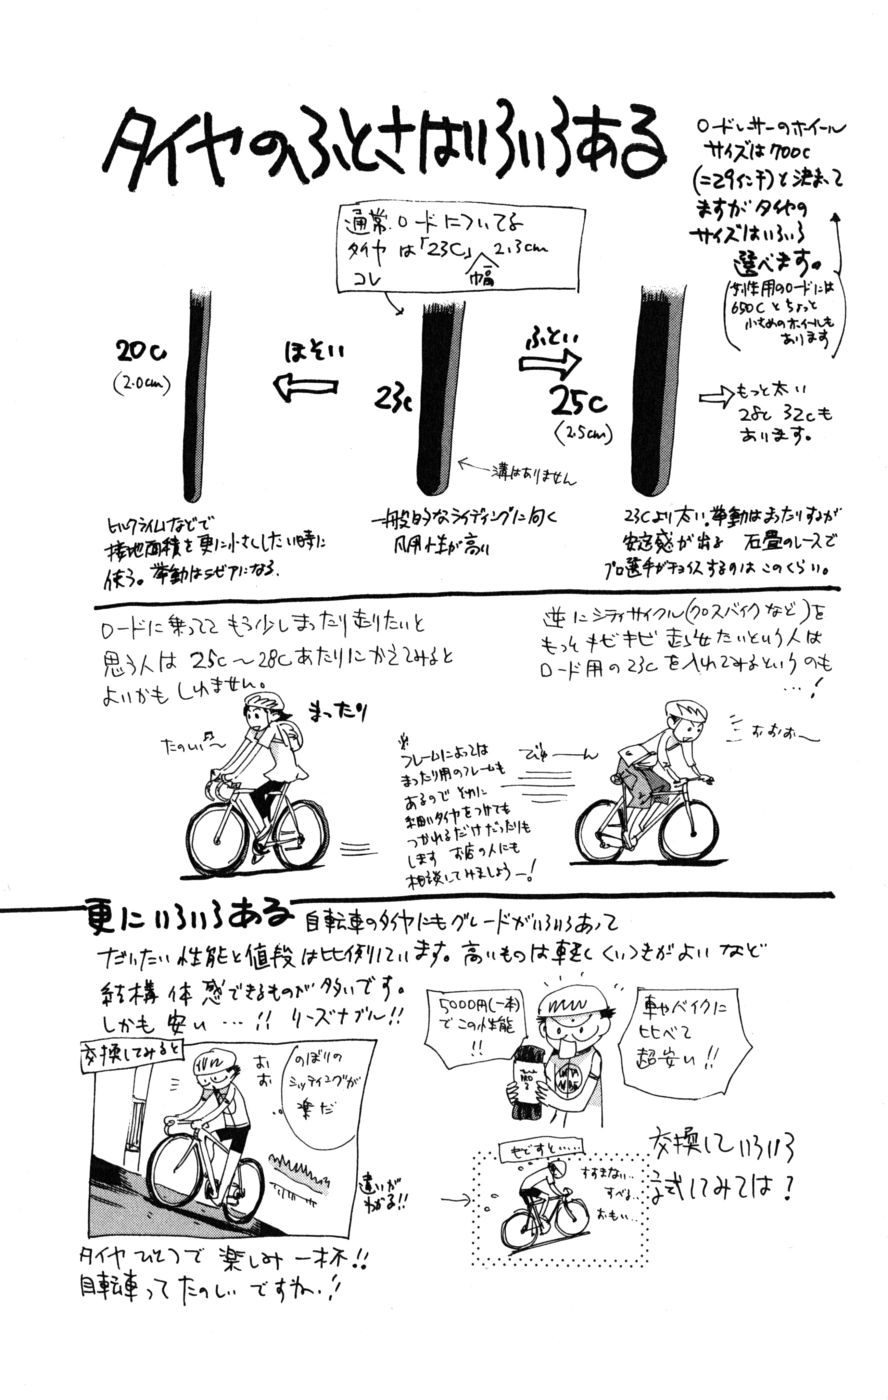 タイヤのふとさはいろいろある
ロードレサーのホイール
サイズは700C
(=29インチ)と決まって
ますがタイヤの
サイズはいろいろ
選べます。
(女性用のロードには
650Cとちょっと
小さめのホイールも
あります)
通常、ロードについてる
タイヤは「23C」2.3cm
コレ 幅
20C
(2.0cm)
ほそい
23C
ふとい
25C
(2.5cm)
もっと太い
28C 32Cも
あります。
溝はありません
ヒルクライムなどで
接地面積を更に小さくしたい時に
使う。挙動はシビアになる.
一般的なライディングに向く
汎用性が高い
23Cより太い。挙動はまったりするが
安定感が出る 石畳のレースで
プロ選手がチョイスするのはこのくらい。
ロードに乗ってて もう少しまったり走りたいと
思う人は 25C〜28Cあたりにかえてみると
よいかもしれません。
逆にシティサイクル(クロスバイクなど)を
もっとキビキビ走らせたいという人は
ロード用の23Cを入れてみるというのも
…!
まったり
たのしい〜
※
フレームによっては
まったり用のフレームも
あるので それに
細いタイヤをつけても
つかれるだけだったりも
します お店の人にも
相談してみましょう—!
びゅーーん
おおお〜
更にいろいろある 自転車のタイヤにもグレードがいろいろあって
だいたい性能と値段は比例しています。高いものは軽くくいつきがよいなど
結構体感できるものが多いです。
しかも安い…!! リーズナブル!!
交換してみると
おお
のぼりの
シッティングが
楽だ
違いが
わかる!!
5000円(一本)
でこの性能
!!
PRO
2
車やバイクに
比べて
超安い!!
もどすと……
すすまない…
すべる…
おもい…
交換していろいろ
試してみては?
タイヤひとつで楽しみ一杯!!
自転車ってたのしいですね!!